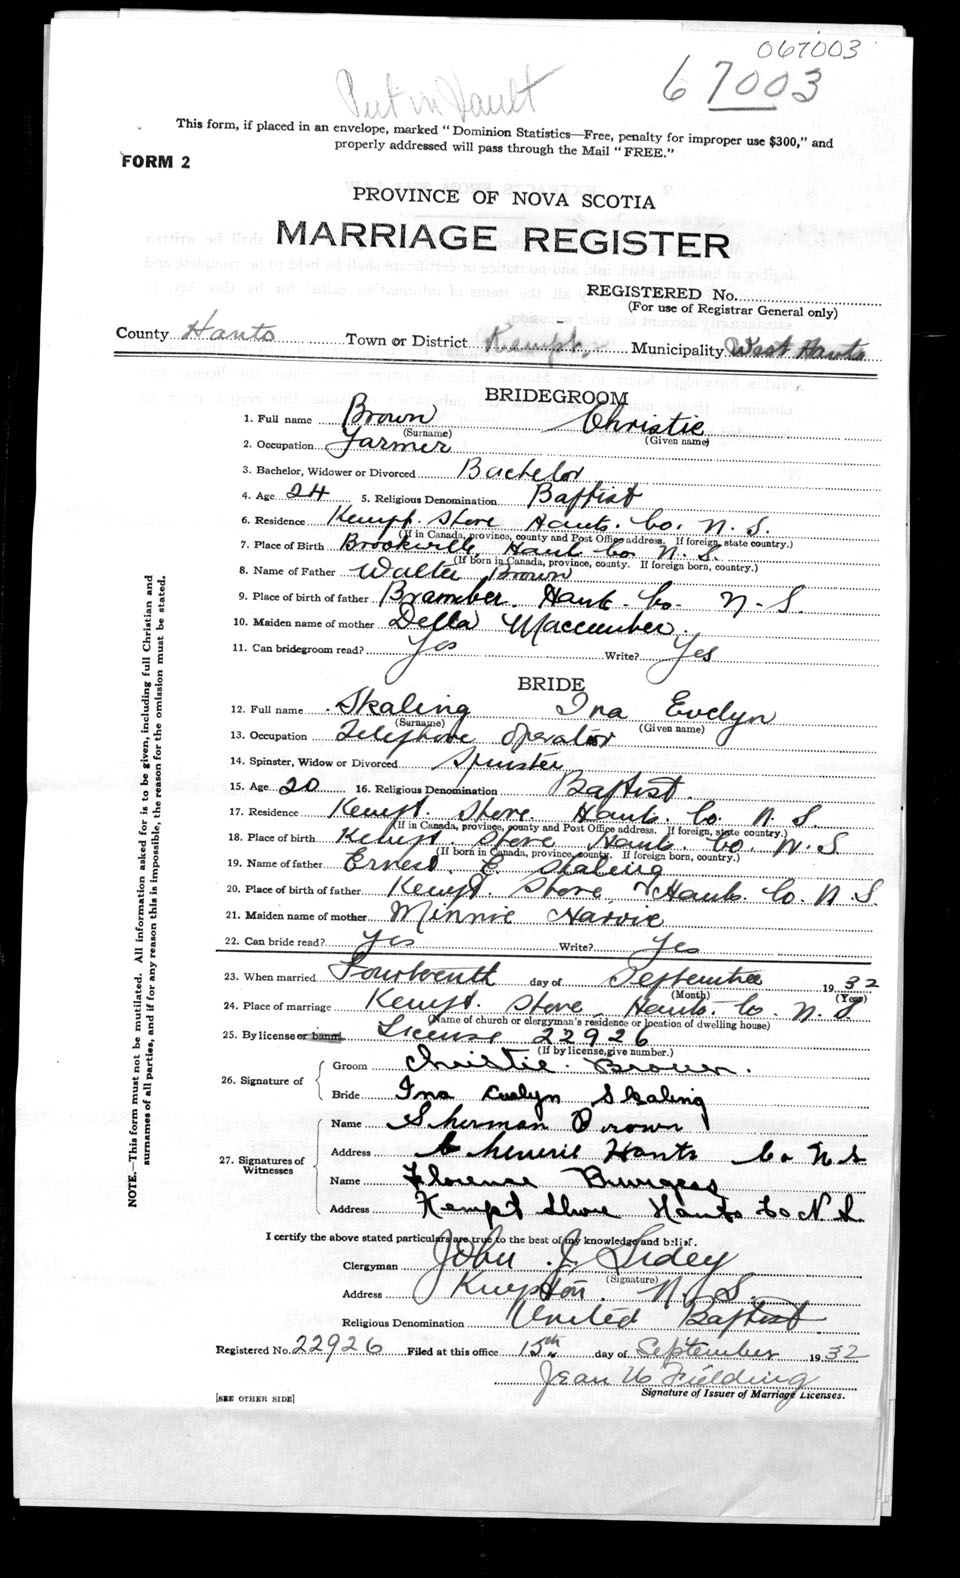 067003
67003
Put in Vault
This form, if placed in an envelope, marked "Dominion Statistics—Free, penalty for improper use $300," and
properly addressed will pass through the Mail "FREE."
FORM 2
PROVINCE OF NOVA SCOTIA
MARRIAGE REGISTER
REGISTERED No.
(For use of Registrar General only)
County Hants Town or District Kempt, Municipality West Hants
BRIDEGROOM
1. Full name Brown Christie
(Surname) (Given name)
2. Occupation Farmer
3. Bachelor, Widower or Divorced Bachelor
4. Age 24 5. Religious Denomination Baptist
6. Residence Kempt. Shore Hants. Co. N. S.
(If in Canada, province, county and Post Office address. If foreign, state country.)
7. Place of Birth Brockville, Hants Co. N. S.
(If born in Canada, province, county. If foreign born, country.)
8. Name of Father Walter Brown
9. Place of birth of father Bramber. Hants. Co. N. S.
10. Maiden name of mother Della Maccumber.
11. Can bridegroom read? Yes Write? Yes
BRIDE
12. Full name Skaling Ina Evelyn
(Surname) (Given name)
13. Occupation Telephone Operator
14. Spinster, Widow or Divorced Spinster
15. Age 20 16. Religious Denomination Baptist
17. Residence Kempt. Shore. Hants. Co. N. S.
(If in Canada, province, county and Post Office address. If foreign, state country.)
18. Place of birth Kempt. Shore Hants. Co. N. S.
(If born in Canada, province, county. If foreign born, country.)
19. Name of father Ernest. E. Skaling
20. Place of birth of father Kempt. Shore, Hants. Co. N. S.
21. Maiden name of mother Minnie Harvie
22. Can bride read? Yes Write? Yes
23. When married Fourteenth day of September 1932
(Month) (Year)
24. Place of marriage Kempt. Shore, Hants. Co. N. S
(Name of church or clergyman's residence or location of dwelling house)
25. By license or banns License 22926
(If by license, give number.)
26. Signature of
Groom Christie. Brown.
Bride Ina Evelyn Skaling
27. Signatures of Witnesses
Name Sherman Brown
Address Cheverie Hants Co N.S.
Name Florence Burgess
Address Kempt Shore Hants Co N. S.
I certify the above stated particulars are true to the best of my knowledge and belief.
Clergyman John J. Sidey
(Signature)
Address Kempton. N. S.
Religious Denomination United Baptist
Registered No. 22926 Filed at this office 15th day of September 1932
Jean Fielding
Signature of Issuer of Marriage Licenses.
[SEE OTHER SIDE]
NOTE.—This form must not be mutilated. All information asked for is to be given, including full Christian and
surnames of all parties, and if for any reason this is impossible, the reason for the omission must be stated.